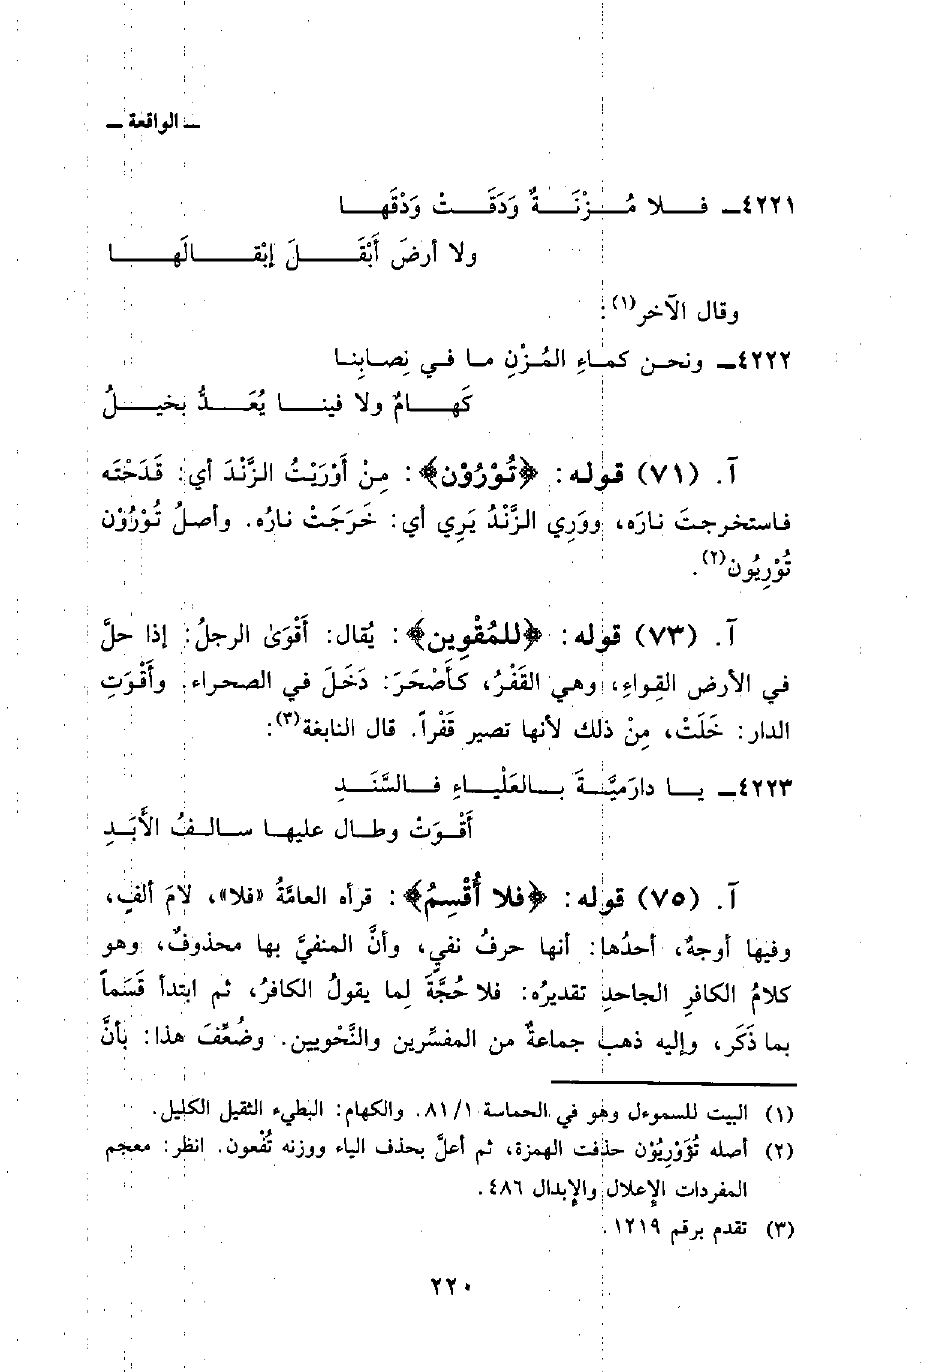 ـ الواقعة ـ
٤٢٢١ـ فـلا مُـزْنَـةٌ وَدَقَـتْ وَدْقَهـا
ولا أرضَ أَبْقَـلَ إبْقـالَهـا
وقال الآخر(١):
٤٢٢٢ـ ونحـن كمـاءِ المُـزْنِ مـا فـي نِصـابِنـا
كَهـامٌ ولا فينـا يُعَـدُّ بخيـلُ
آ. (٧١) قوله: ﴿تُوْرُوْن﴾: مِنْ أَوْرَيْتُ الزَّنْدَ أي: قَدَحْتَه
فاستخرجتَ نارَه، ووَرِي الزَّنْدُ يَرِي أي: خَرَجَتْ نارُه. وأصلُ تُوْرُوْن
تُوْرِيُون(٢).
آ. (٧٣) قوله: ﴿للمُقْوِين﴾: يُقال: أَقْوَىٰ الرجلُ: إذا حلَّ
في الأرض القِواءِ، وهي القَفْرُ، كأَصْحَرَ: دَخَلَ في الصحراء. وأَقْوَتِ
الدار: خَلَتْ، مِنْ ذلك لأنها تصير قَفْراً. قال النابغة(٣):
٤٢٢٣ـ يـا دارَميَّـةَ بـالعَلْيـاءِ فـالسَّنَـدِ
أَقْـوَتْ وطـال عليهـا سـالـفُ الأَبَـدِ
آ. (٧٥) قوله: ﴿فلا أُقْسِمُ﴾: قرأه العامَّةُ «فلا»، لامَ ألفٍ،
وفيها أوجهٌ، أحدُها: أنها حرفُ نفيٍ، وأنَّ المنفيَّ بها محذوفٌ، وهو
كلامُ الكافرِ الجاحدِ تقديرُه: فلا حُجَّةَ لِما يقولُ الكافرُ، ثم ابتدأ قَسَماً
بما ذَكَر، وإليه ذهب جماعةٌ من المفسِّرين والنَّحْويين. وضُعِّفَ هذا: بأنَّ
(١) البيت للسموءل وهو في الحماسة ١/ ٨١. والكهام: البطيء الثقيل الكليل.
(٢) أصله تُؤَوْرِيُوْن حذفت الهمزة، ثم أعلَّ بحذف الياء ووزنه تُفْعون. انظر: معجم
المفردات الإعلال والإبدال ٤٨٦.
(٣) تقدم برقم ١٢١٩.
٢٢٠